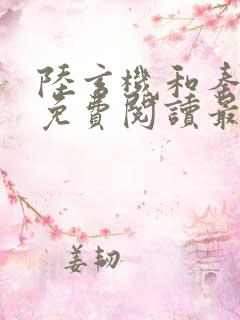 陸立機和秦
免費閱讀最
姜韌